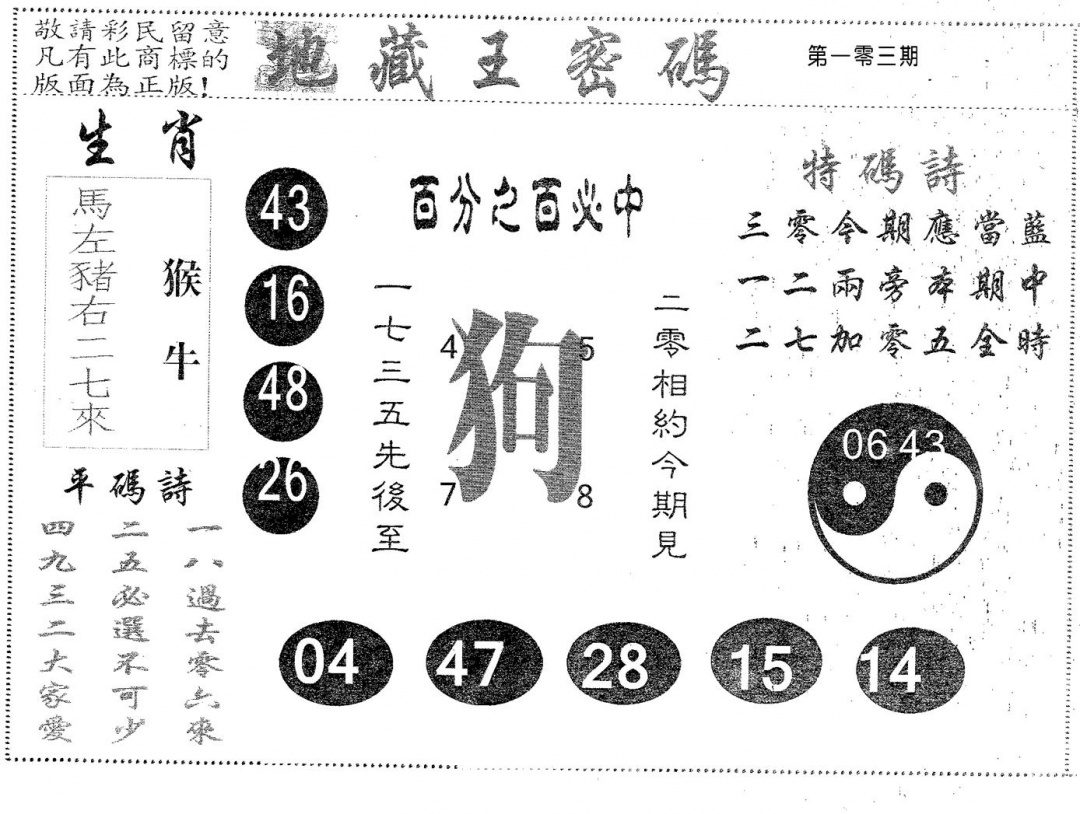 敬請彩民留意
凡有此商標的
版面為正版!
地藏王密碼
第一零三期
生肖
馬左豬右二七來
猴牛
43
16
48
26
百分之百必中
一七三五先後至
4
5
狗
7
8
二零相約今期見
特碼詩
三零今期應當藍
一二兩旁本期中
二七加零五全時
06 43
平碼詩
一八過去零六來
二五必選不可少
四九三二大家愛
04
47
28
15
14